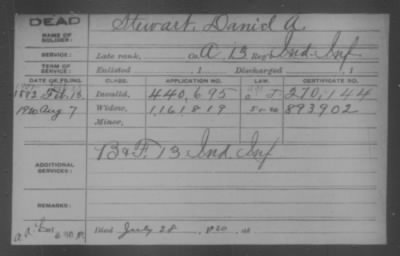 DEAD
NAME OF SOLDIER: Stewart, Daniel A.
SERVICE: Late rank, Co. A, 13 Reg't Ind. Inf
TERM OF SERVICE: Enlisted , 1 Discharged , 1
DATE OF FILING. CLASS. APPLICATION NO. LAW. CERTIFICATE NO.
Feb. Invalid, 440,695 270,144
1920 Aug 7 Widow, 1,161,819 893,902
Minor,
ADDITIONAL SERVICES: B & F. 13 Ind. Inf
REMARKS:
Died July 28, 1920, at